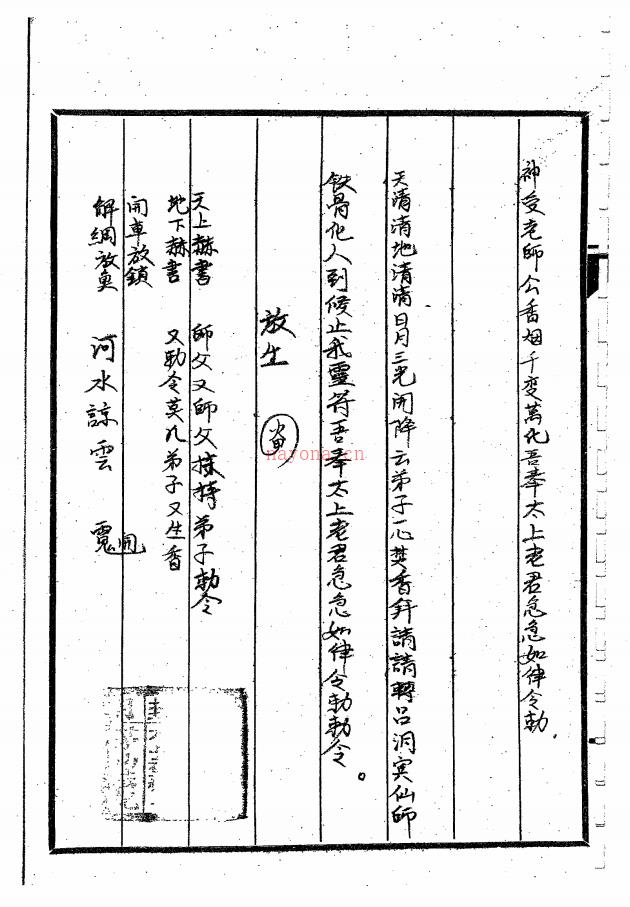 神变老師公香烟千变萬化吾奉太上老君急急如律令勅
天清清地清清日月三光開降云弟子一心焚香拜請請轉呂洞宾仙師
铁骨化人到候止我靈符吾奉太上老君急急如律令勅勅令。
放生
天上赫書 師父又師父 持弟子勅令
地下赫書 又勅令莫凡弟子又生香
開車放鎖
解網放魚 河水諒雲開
nayona.cn